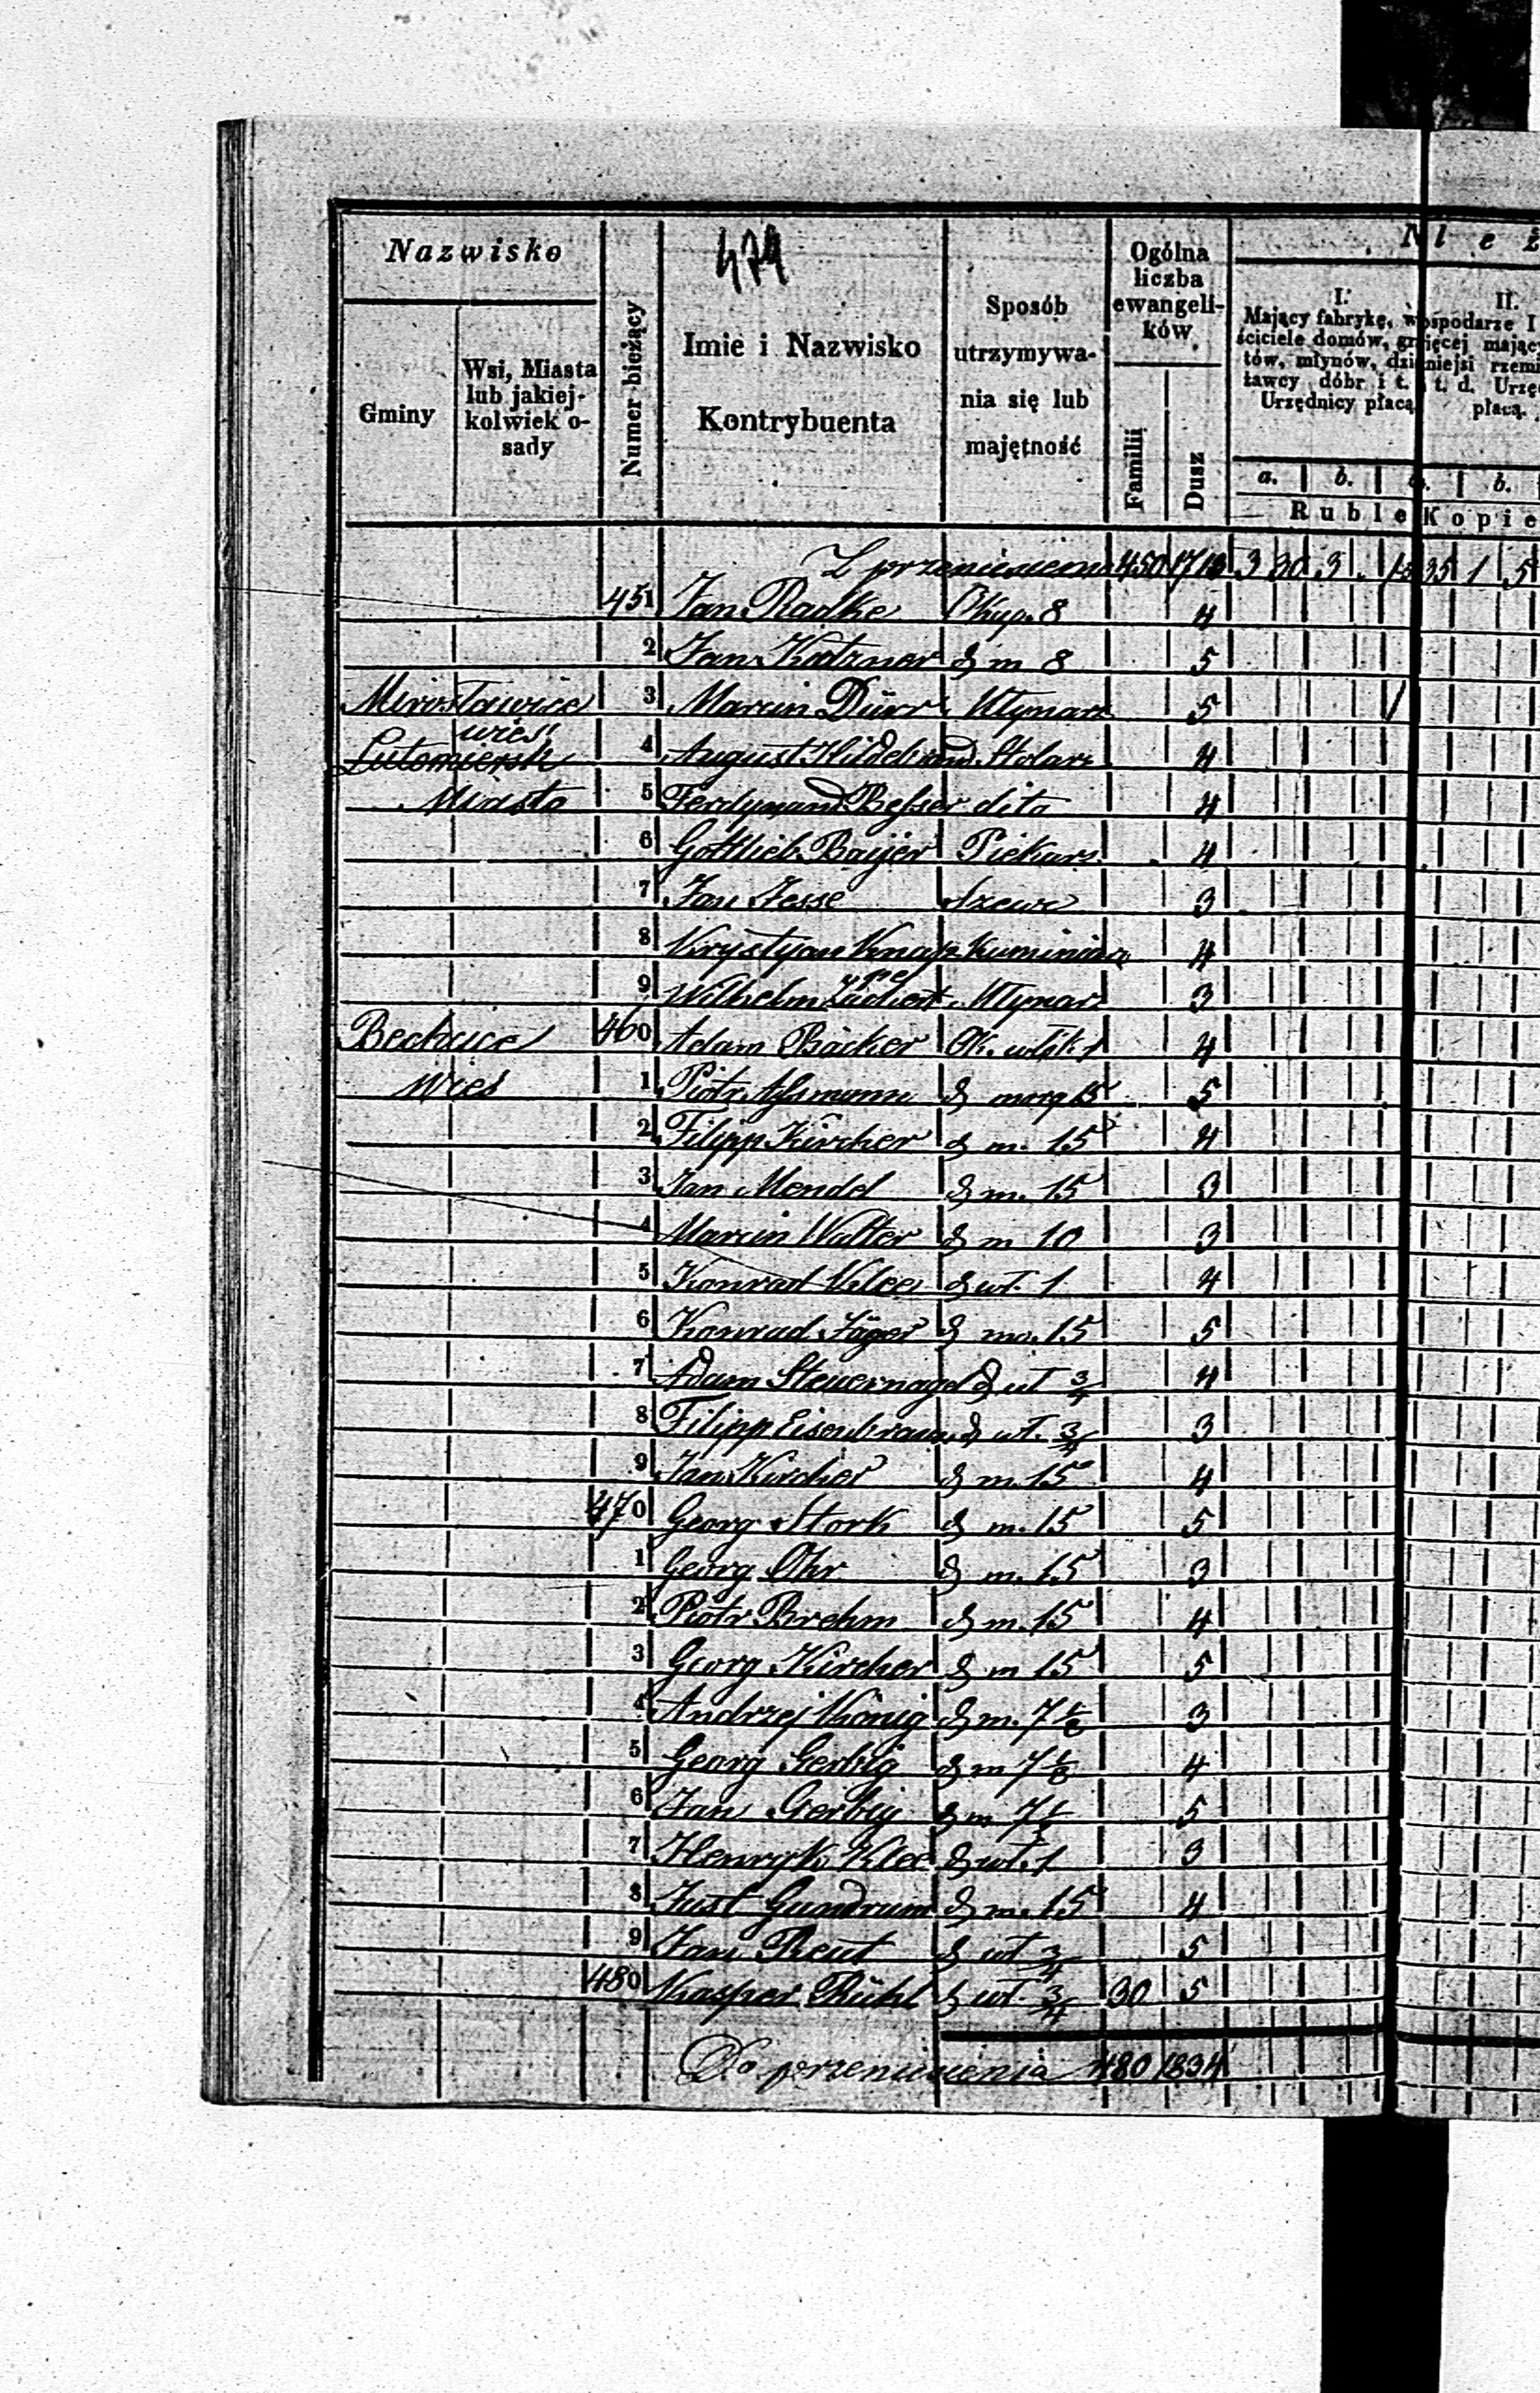 479
Nazwisko
Gminy
Wsi, Miasta lub jakiej-kolwiek o-sady
Numer bieżący
Imie i Nazwisko Kontrybuenta
Sposób utrzymywa-nia się lub majętność
Ogólna liczba ewangeli-ków.
Familii
Dusz
I. Mający fabrykę, w
ściciele domów, gr
tów, młynów, dzi
żawcy dóbr i t.
Urzędnicy płacą
II.
ospodarze
ięcej mający
niejsi rzemi
t. d. Urzę
płacą.
a. b. b.
Ruble Kopie
Z przeniesienia 450 1713 3 30 3 35 1 5
451 Jan Radke Okup. 8 4
2 Jan Katzner d m 8 5
Mirosławice 3 Marcin Dürr Młynarz 5 1
wieś
Lutomiersk 4 August Hildebrand Stolarz 4
Miasto 5 Ferdynand Besser dito 4
6 Gottlieb Baijer Piekarz 4
7 Jan Jesse Szewc 3
8 Krystyan Knappe Kominiarz 4
9 Wilhelm Zachert Młynarz 3
Bechcice 460 Adam Bäcker Ok. włók 1 4
Wieś 1 Piotr Assmann d morg 15 5
2 Filipp Kircher d m. 15 4
3 Jan Mendel d m. 15 3
4 Marcin Walter d m 10 3
5 Konrad Klee d wł. 1 4
6 Konrad Jäger d mo. 15 5
7 Adam Steuernagel d wł 3/4 4
8 Filipp Eisenbraun d wł. 3/4 3
9 Jan Kircher d m. 15 4
470 Georg Stork d m. 15 5
1 Georg Ohr d m. 15 3
2 Piotr Brehm d m. 15 4
3 Georg Kircher d m 15 5
4 Andrzej König d m. 7 1/2 3
5 Georg Gerbig d m 7 1/2 4
6 Jan Gerbig d m 7 1/2 5
7 Henryk Klee d wł. 1 3
8 Just Gundrum d m. 15 4
9 Jan Reut d wł 3/4 5
480 Kasper Rühl d wł. 3/4 30 5
Do przeniesienia 480 1834